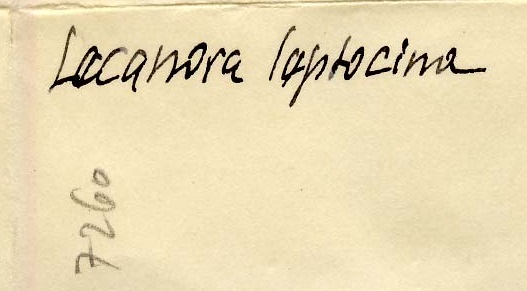 Lecanora leptocina
7260